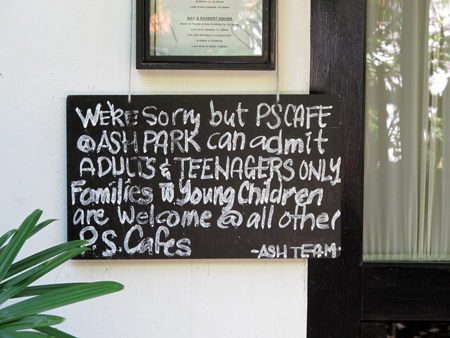 WE'RE SORRY but PSCAFE
@ASH PARK can admit
ADULTS & TEENAGERS ONLY
Families w Young Children
are Welcome @ all other
P.S. Cafes
-ASH TEAM-